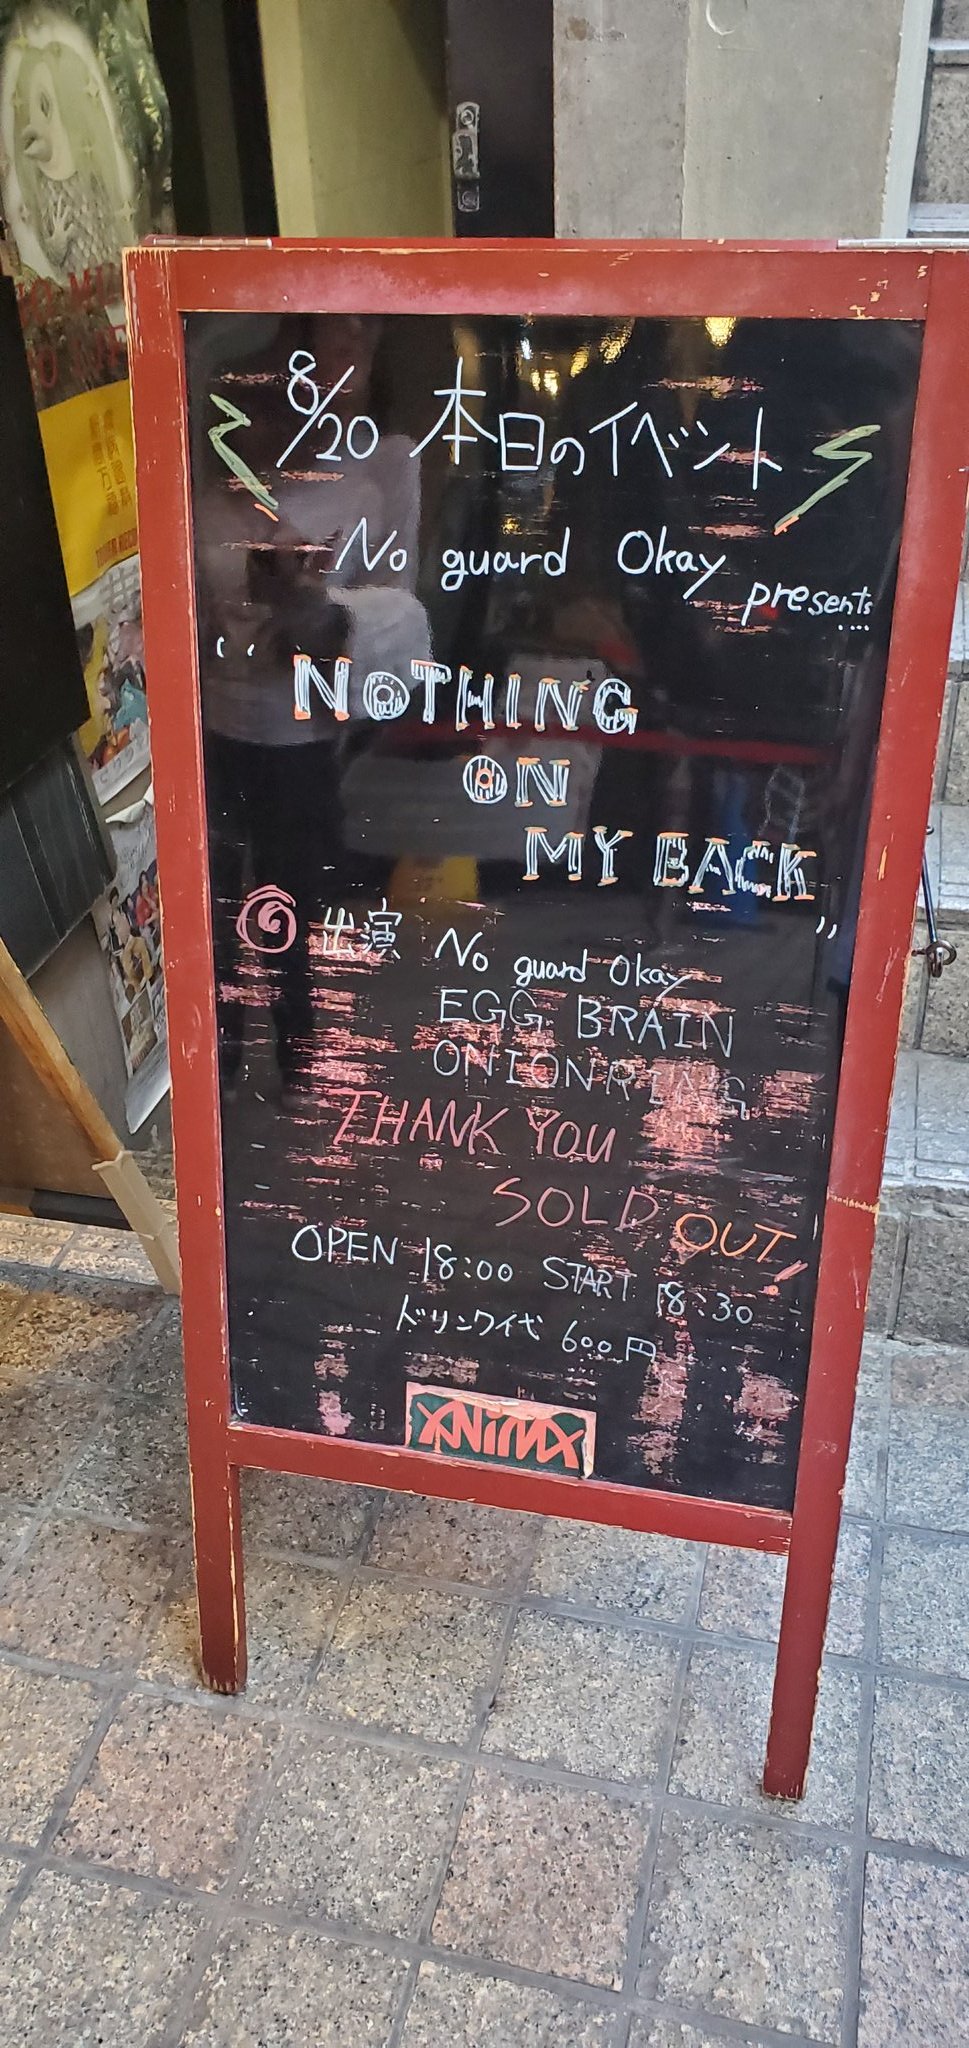 8/20 本日のイベント
No guard Okay presents
“NOTHING
ON
MY BACK”
出演 No guard Okay
EGG BRAIN
ONIONRING
THANK YOU
SOLD OUT!
OPEN 18:00 START 18:30
ドリンク代 600円